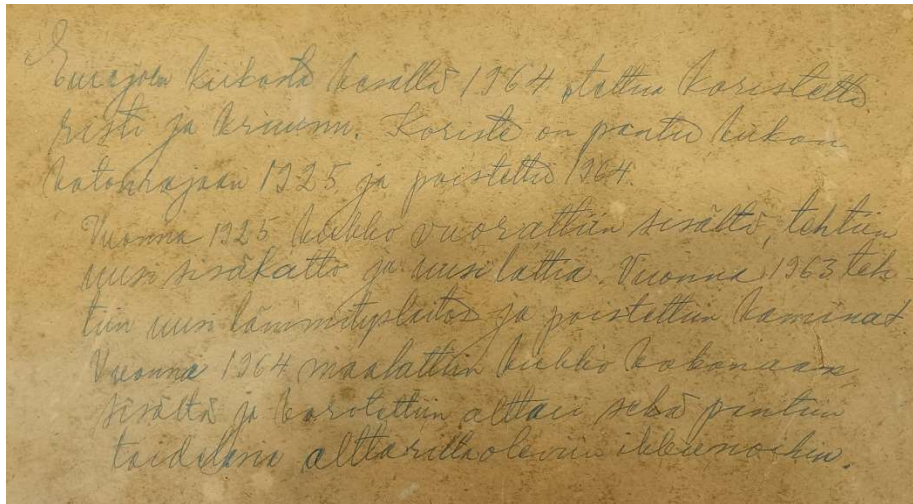 Eurajoen kirkosta kesällä 1964 otettua koristetta
risti ja kruunu. Koriste on pantu kirkon
katonrajaan 1925 ja poistettu 1964.
Vuonna 1925 kirkko vuorattiin sisältä, tehtiin
uusi sisäkatto ja uusi lattia. Vuonna 1963 teh
tiin uusi lämmityslaitos ja poistettiin kaminat
Vuonna 1964 maalattiin kirkko kokonaan
sisältä ja korotettiin alttari sekä pantiin
alttarilla oleviin ikkunoihin.